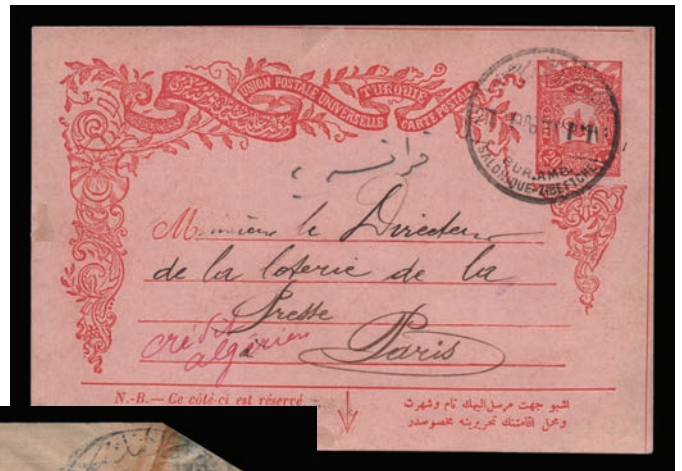 UNION POSTALE UNIVERSELLE
TURQUIE
CARTE POSTALE
BUR. AMB.
SALONIQUE-ZIBEFTCHE
20
فرانسه
Monsieur le Directeur
de la loterie de la
Presse
crédit
algérien
à Paris
N.-B.— Ce côté-ci est réservé
اشبو جهت مرسل اليهك نام وشهرت
ومحل اقامتنك تحريرينه مخصوصدر